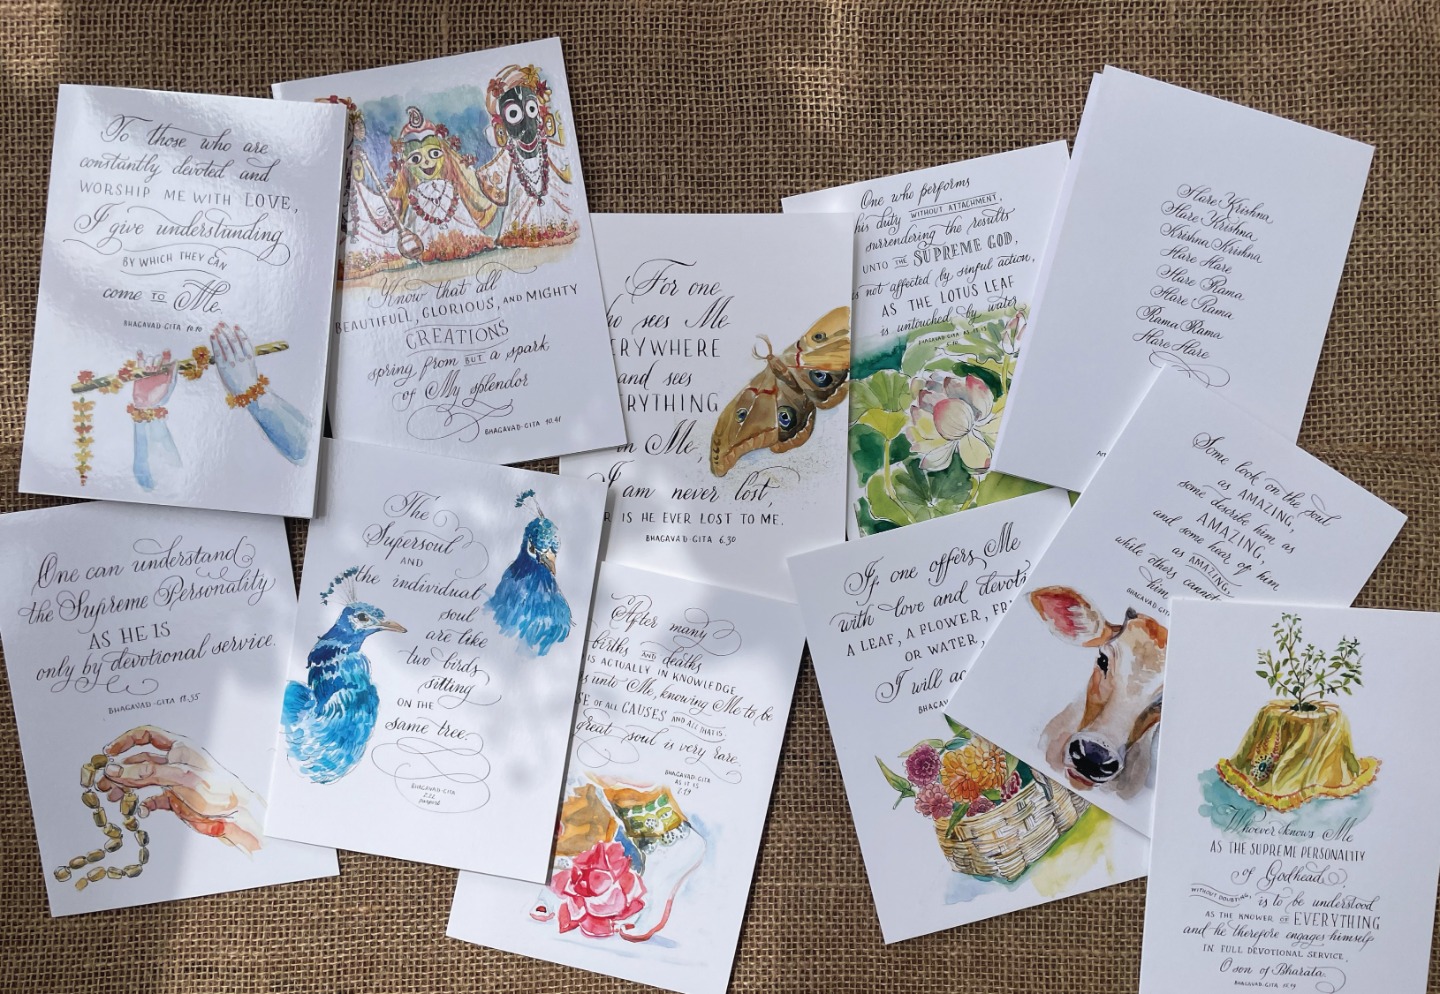 To those who are
constantly devoted and
WORSHIP ME WITH LOVE,
I give understanding
BY WHICH THEY CAN
come TO Me.
BHAGAVAD-GITA 10.10
Know that all
BEAUTIFULL, GLORIOUS, AND MIGHTY
CREATIONS
spring from BUT a spark
of My splendor
BHAGAVAD-GITA 10.41
For one
who sees Me
ERYWHERE
and sees
ERYTHING
in Me,
I am never lost,
R IS HE EVER LOST TO ME.
BHAGAVAD-GITA 6.30
One who performs
his duty WITHOUT ATTACHMENT,
surrendering the results
UNTO THE SUPREME GOD,
is not affected by sinful action,
AS THE LOTUS LEAF
is untouched by water
Hare Krishna
Hare Krishna
Krishna Krishna
Hare Hare
Hare Rama
Hare Rama
Rama Rama
Hare Hare
One can understand
the Supreme Personality
AS HE IS
only by devotional service.
BHAGAVAD-GITA 18.55
The
Supersoul
AND
the individual
soul
are like
two birds
sitting
ON THE
same tree.
BHAGAVAD-GITA
2.22
purport
After many
births AND deaths
IS ACTUALLY IN KNOWLEDGE
s unto Me, knowing Me to be
SE OF ALL CAUSES AND ALL THAT IS.
great soul is very rare.
BHAGAVAD-GITA
AS IT IS
7.19
If one offers Me
with love and devot
A LEAF, A FLOWER, FR
OR WATER,
I will ac
BHAGAV
Some look on the soul
as AMAZING,
some describe him as
AMAZING,
and some hear of him
as AMAZING,
while others cannot
him
BHAGAVAD-GIT
Whoever knows Me
AS THE SUPREME PERSONALITY
of Godhead,
WITHOUT DOUBTING, is to be understood
AS THE KNOWER OF EVERYTHING
and he therefore engages himself
IN FULL DEVOTIONAL SERVICE,
O son of Bharata.
BHAGAVAD-GITA 15.19